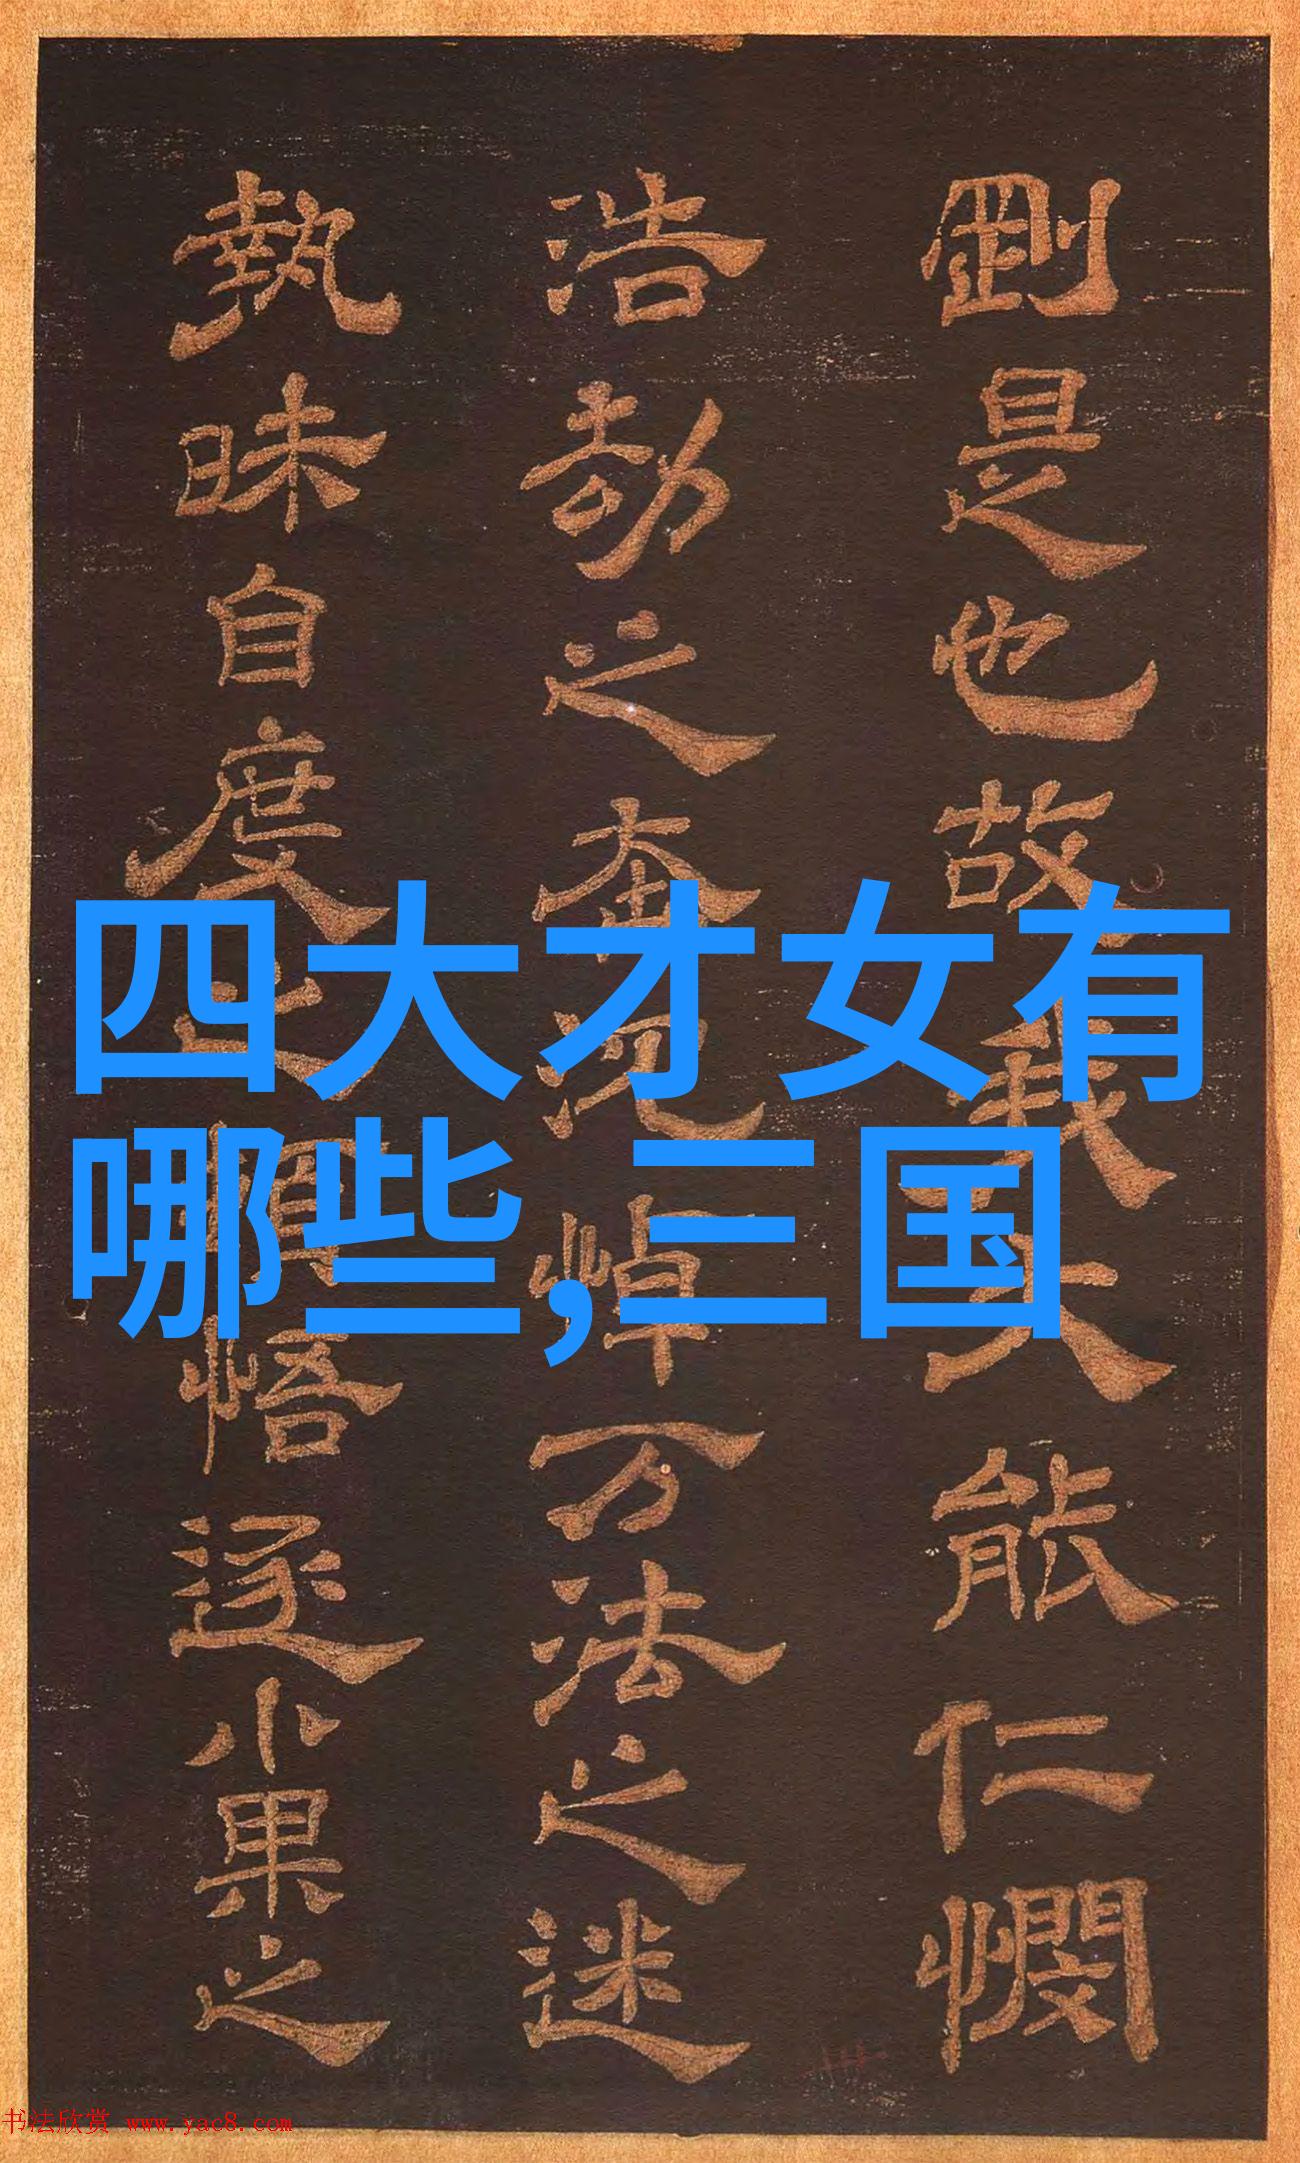 剛是也故我大能仁憫
浩劫之奔沉悼万法之迷
執昧自度之頓悟逐小果之
四大才女有
哪些,三国
书法欣赏 www.yac8.com